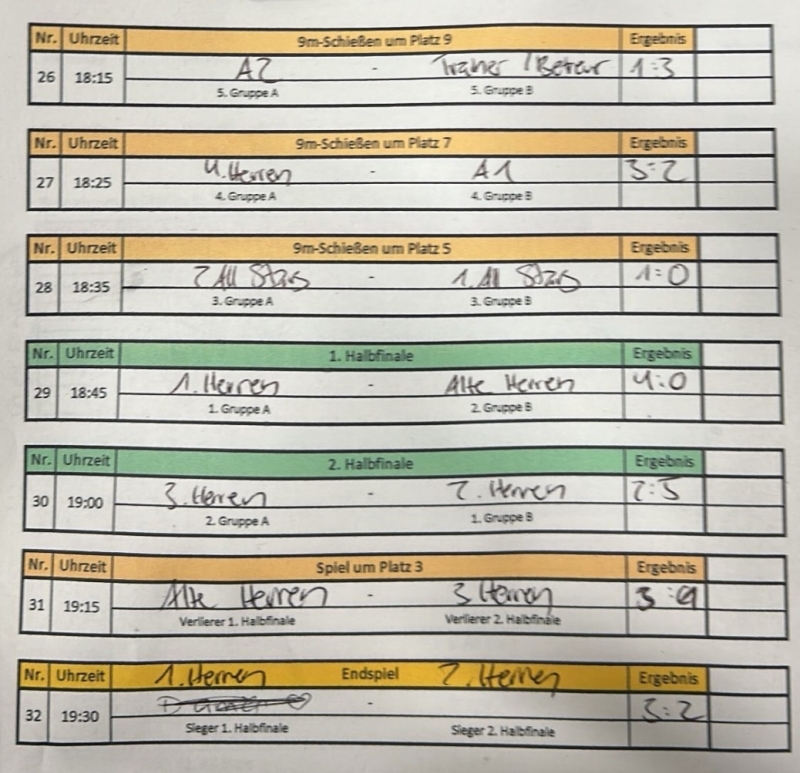 Nr. Uhrzeit 9m-Schießen um Platz 9 Ergebnis
26 18:15 A2 - Trainer / Betreur 1:3
5. Gruppe A 5. Gruppe B
Nr. Uhrzeit 9m-Schießen um Platz 7 Ergebnis
27 18:25 4. Herren - A1 3:2
4. Gruppe A 4. Gruppe B
Nr. Uhrzeit 9m-Schießen um Platz 5 Ergebnis
28 18:35 2 All Stars - 1. All Stars 1:0
3. Gruppe A 3. Gruppe B
Nr. Uhrzeit 1. Halbfinale Ergebnis
29 18:45 1. Herren - Alte Herren 4:0
1. Gruppe A 2. Gruppe B
Nr. Uhrzeit 2. Halbfinale Ergebnis
30 19:00 3. Herren - 2. Herren 2:5
2. Gruppe A 1. Gruppe B
Nr. Uhrzeit Spiel um Platz 3 Ergebnis
31 19:15 Alte Herren - 3 Herren 3:4
Verlierer 1. Halbfinale Verlierer 2. Halbfinale
Nr. Uhrzeit 1. Herren Endspiel 2. Herren Ergebnis
32 19:30 - 3:2
Sieger 1. Halbfinale Sieger 2. Halbfinale